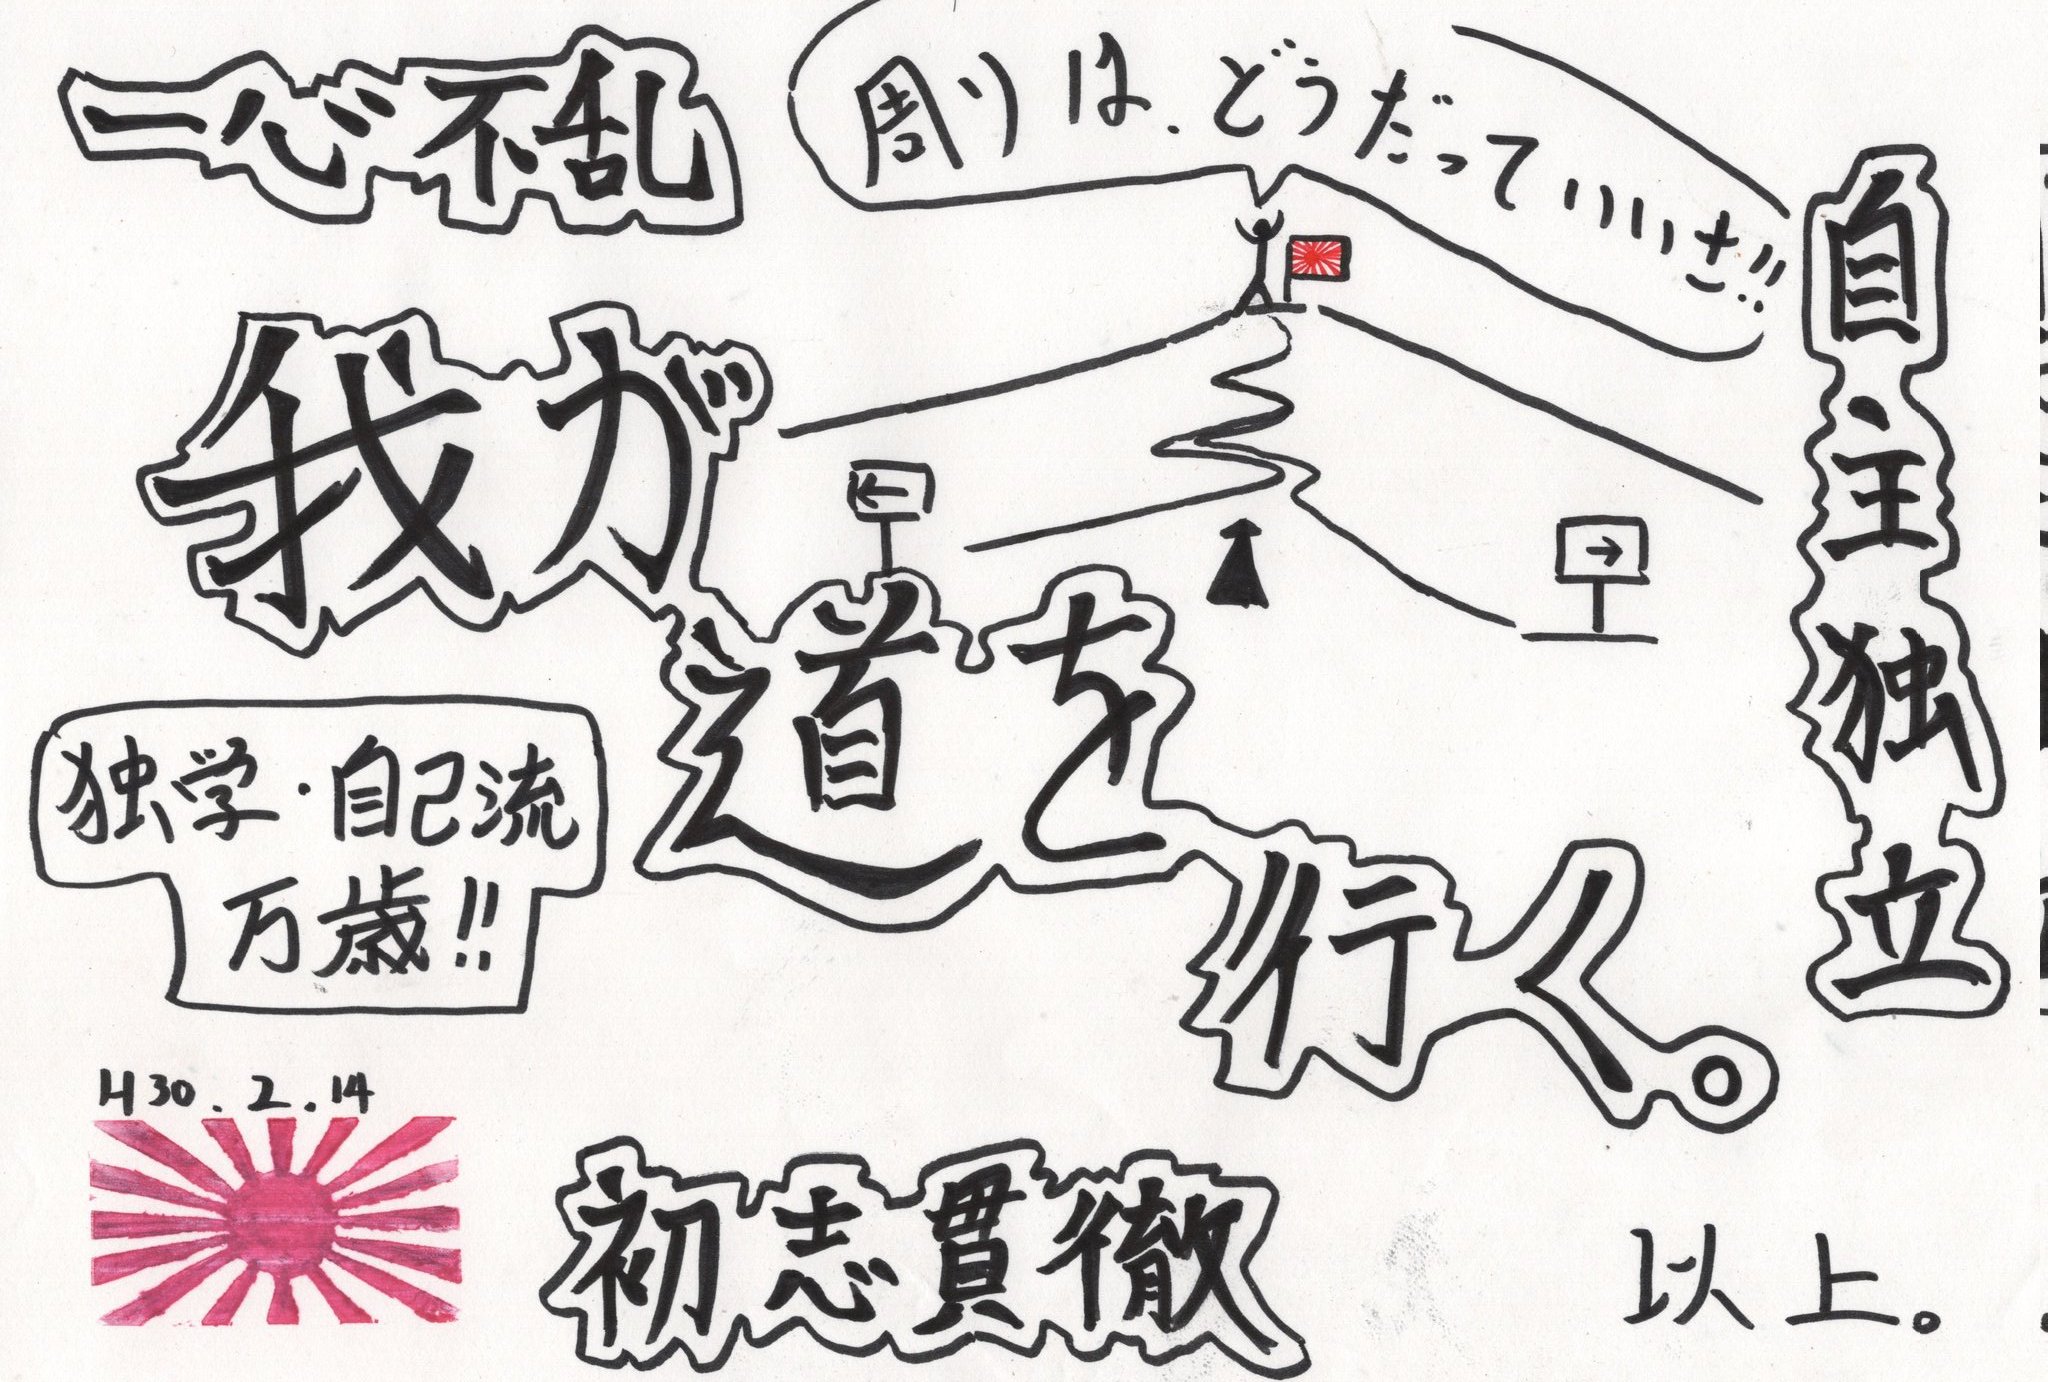 一心不乱
周りは、どうだっていいさ!!
自主独立
我が
道を
行く。
独学・自己流
万歳!!
H30.2.14
初志貫徹
以上。